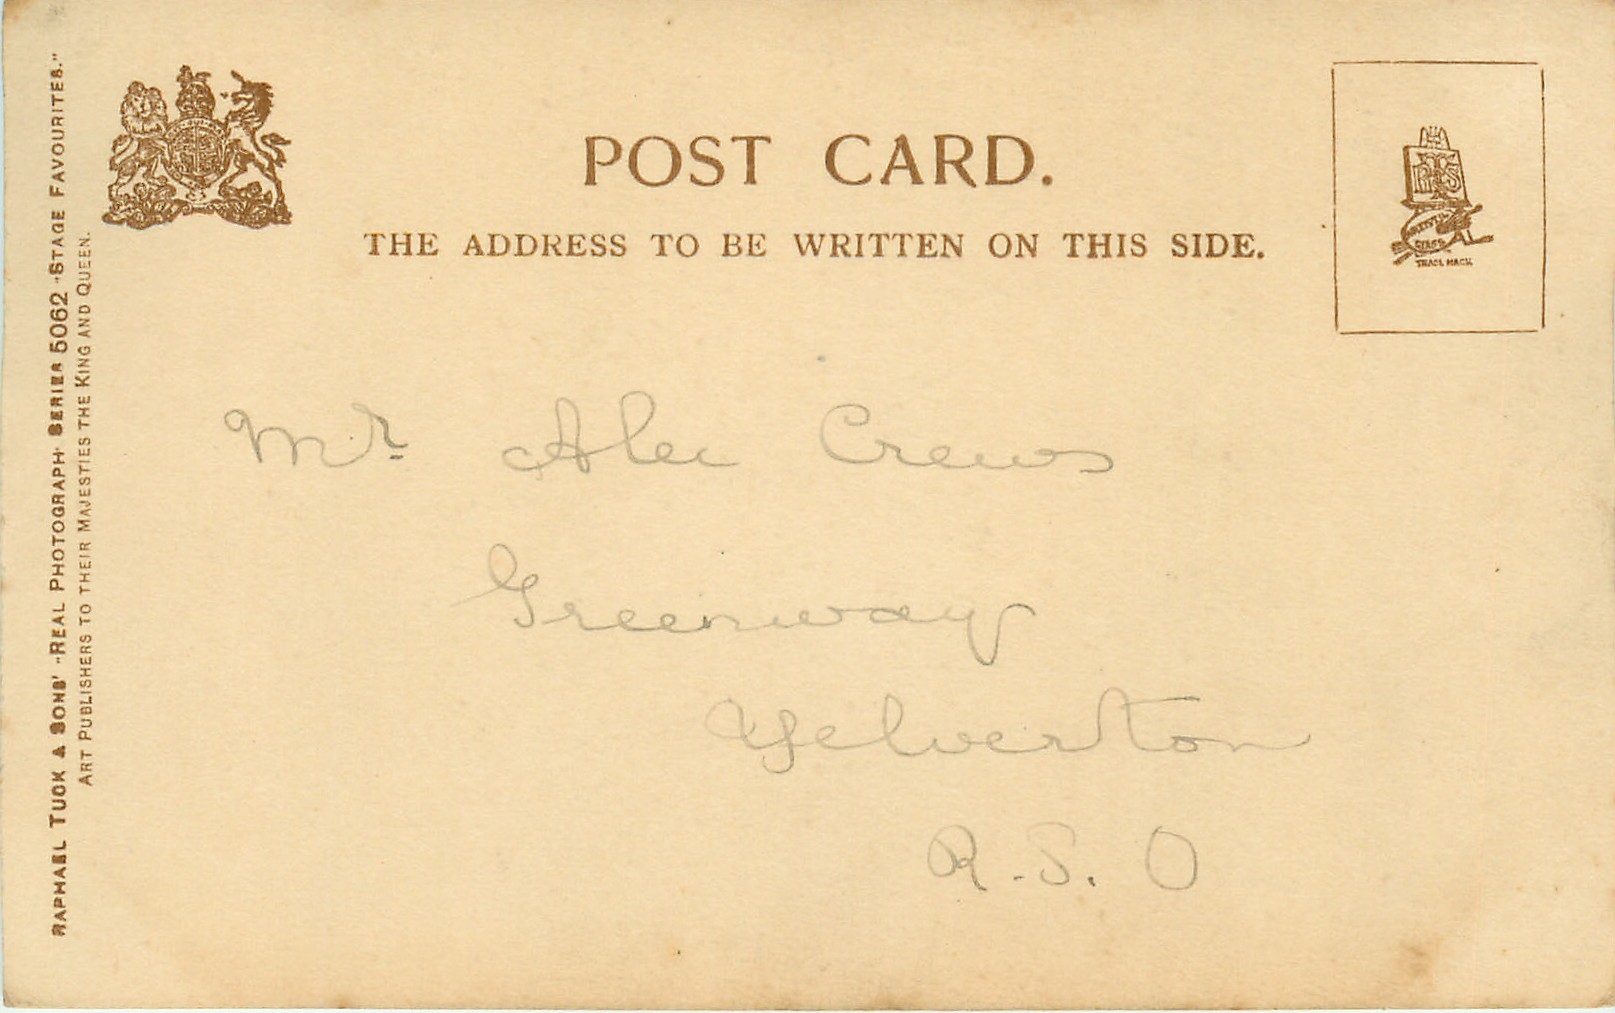 POST CARD.
THE ADDRESS TO BE WRITTEN ON THIS SIDE.
RAPHAEL TUCK & SONS' "REAL PHOTOGRAPH" SERIES 5062 "STAGE FAVOURITES."
ART PUBLISHERS TO THEIR MAJESTIES THE KING AND QUEEN.
TRADE MARK.
Mr. Alec Crews
Greenway
Yelverton
R.S.O